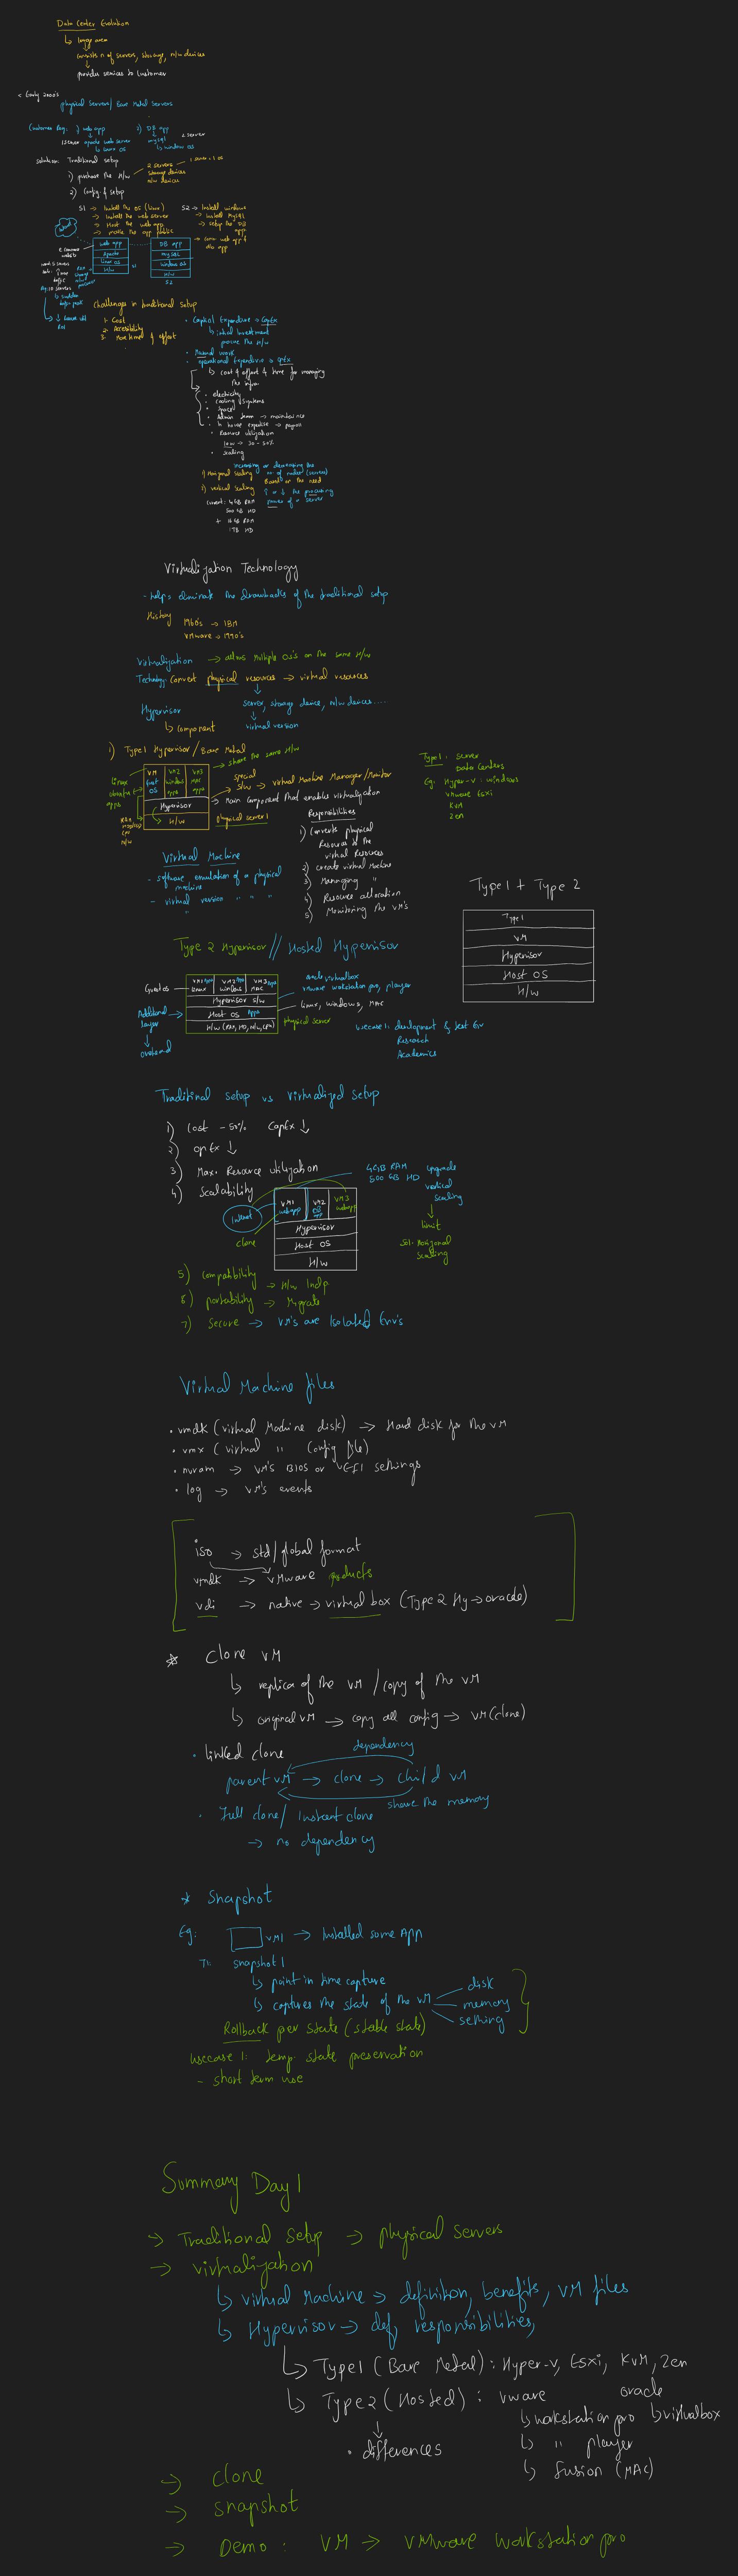 Data Center Evolution
↳ large area
consists n of servers, storage, n/w devices
provides services to customer
< Early 2000's
physical servers/ Bare Metal Servers
Customer Req: 1) web app
1 server apache web server
↳ Linux OS
2) DB app
mysql
2 server
↳ windows OS
solution: Traditional setup
1) purchase the H/w
2 servers
storage devices
n/w devices
1 server : 1 OS
2) Config. & setup
S1 → Install the OS (linux)
→ Install the web server
→ Host the web app
→ make the app public
S2 → Install windows
→ Install MySQL
→ setup the DB
app
→ conn web app &
db app
Internet
web app
Apache
Linux OS
H/w
S1
DB app
mySQL
windows OS
H/w
S2
E commerce
website
traffic
Eg: 10 servers
↳ sudden
traffic peak
Challenges in traditional setup
1. Cost
2. Accesibility
3. More time & effort
• Capital Expenditure → CapEx
↳ initial Investment
procure the H/w
• Manual work
• operational Expenditure → OpEx
↳ cost & effort & time for managing
the infra
• electricity
• cooling systems
• space
• Admin team → maintainance
• In house expertise → payroll
• Resource utilization
low → 30 - 50%
• scaling
1) Horizonal scaling
increasing or decreasing the
no of nodes (servers)
Based on the need
2) vertical scaling
↑ or ↓ the processing
power of a server
Current: 4GB RAM
500 GB HD
+ 16 GB RAM
1TB HD
Virtualization Technology
- helps eliminate the drawbacks of the traditional setup
History 1960's → IBM
VMware → 1990's
Virtualization → allows Multiple OS's on the same H/w
Technology: Convert physical resources → virtual resources
server, storage device, n/w devices....
↓
virtual version
Hypervisor
↳ component
1) Type1 Hypervisor / Bare Metal
→ share the same H/w
VM
Guest
OS
VM2
windows
apps
VM3
MAC
apps
Linux
ubuntu
apps
Hypervisor
H/w
special
S/w → Virtual Machine Manager/Monitor
→ Main Component that enables virtualization
physical server 1
RAM
CPU
n/w
Type1: Server
Data Centers
Eg: Hyper-V : windows
VMware ESXi
KVM
Zen
Responsibilities
1) Converts physical
Resources to the
virtual Resources
2) create virtual Machine
3) Managing "
4) Resource allocation
5) Monitoring the VM's
Virtual Machine
- software emulation of a physical
machine
- virtual version " " "
"
Type1 + Type 2
Type1
VM
Hypervisor
Host OS
H/w
Type 2 Hypervisor // Hosted Hypervisor
Guest OS
VM1 App
Linux
VM2 App
windows
VM3 App
MAC
Hypervisor s/w
Host OS Apps
H/w (RAM, HD, n/w, CPU)
oracle virtualbox
vmware workstation pro, player
Linux, windows, MAC
physical server
Additional
layer
↓
overhead
usecase 1: development & test Env
Research
Academics
Traditinal setup vs Virtualized setup
1) Cost - 50% CapEx ↓
2) OpEx ↓
3) Max. Resource utilization
4) Scalability
4GB RAM
500 GB HD
upgrade
vertical
scaling
↓
limit
sol: Horizonal
scaling
Internet
clone
VM1
webapp
VM2
DB
app
VM3
webapp
Hypervisor
Host OS
H/w
5) Compatibility → H/w Indp
6) portability → Migrate
7) Secure → VM's are Isolated Env's
Virtual Machine files
• vmdk (virtual Machine disk) → Hard disk for the VM
• vmx (virtual " Config file)
• nvram → VM's BIOS or UEFI settings
• log → VM's events
iso → std/global format
vmdk → VMware products
vdi → native → virtual box (Type 2 Hy → oracle)
* Clone VM
↳ replica of the VM / copy of the VM
↳ original VM → copy all config → VM (clone)
• linked clone
dependency
parent VM → clone → child VM
share the memory
• Full clone/ Instant clone
→ no dependency
* Snapshot
Eg: VM1 → Installed some App
T1: snapshot 1
↳ point in time capture
↳ captures the state of the VM
disk
memory
setting
Rollback per state (stable state)
usecase 1: temp. state preservation
- short term use
Summary Day 1
→ Traditional Setup → physical servers
→ virtualization
↳ virtual Machine → definition, benefits, VM files
↳ Hypervisor → def, responsibilities,
↳ Type1 (Bare Metal) : Hyper-v, ESXi, KVM, Zen
↳ Type2 (Hosted) : vware oracle
↳ workstation pro ↳ virtualbox
↳ " player
↳ fusion (MAC)
↓
• differences
→ clone
→ snapshot
→ Demo : VM → VMware workstation pro